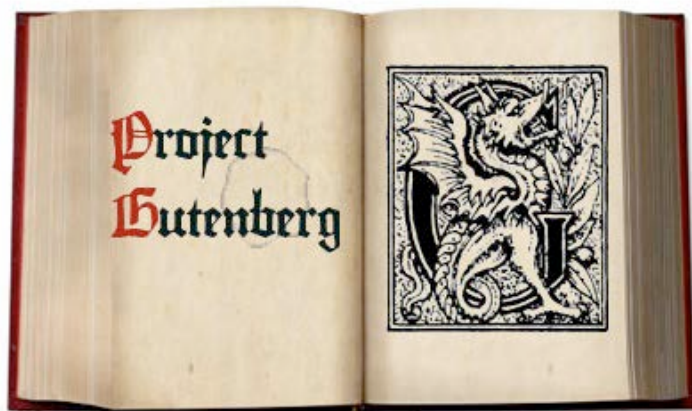 Project
Gutenberg